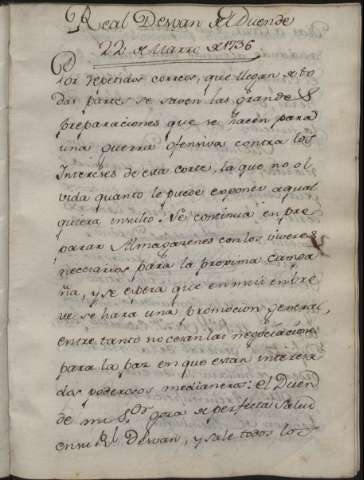 Real Desvan del Duende
22 de Marzo de 1736
Por repetidos correos, que llegan de to
das partes se saven las grandes
preparaciones que se hacen para
una guerra ofensiva contra los
Intereses de esta corte, la que no ol
vida quanto le puede exponer a qual
quiera insulto: Se continua en pre
parar Almagazenes con los viveres
necesarios para la proxima campa
ña, y se espera que en mui breve
se hara una promocion general,
entre tanto no cesan las negociaciones
para la paz en que estan interesa
dos poderosos medianeros: el Duen
de mi S.or goza de perfecta salud
en su R.l Desvan, y sale todos los